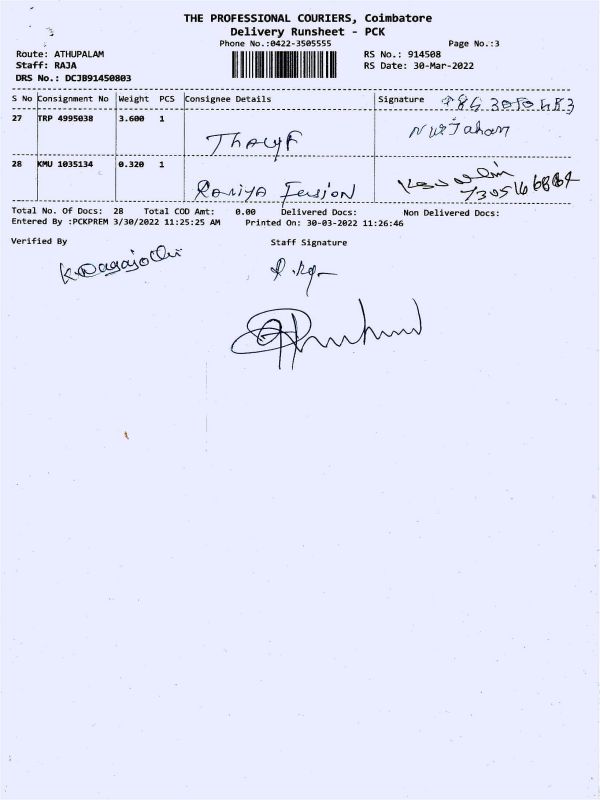 THE PROFESSIONAL COURIERS, Coimbatore
Delivery Runsheet - PCK
Phone No.:0422-3505555 Page No.:3
Route: ATHUPALAM RS No.: 914508
Staff: RAJA RS Date: 30-Mar-2022
DRS No.: DCJB91450803
S No Consignment No Weight PCS Consignee Details Signature
27 TRP 4995038 3.600 1
Nurjahan
28 KMU 1035134 0.320 1
Raniya Fusion
Total No. Of Docs: 28 Total COD Amt: 0.00 Delivered Docs: Non Delivered Docs:
Entered By :PCKPREM 3/30/2022 11:25:25 AM Printed On: 30-03-2022 11:26:46
Verified By Staff Signature